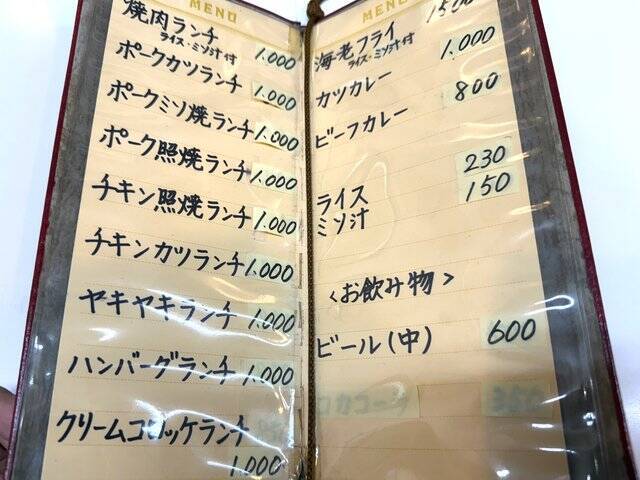 MENU
焼肉ランチ
ライス・ミソ汁付 1.000
ポークカツランチ 1.000
ポークミソ焼ランチ 1.000
ポーク照焼ランチ 1.000
チキン照焼ランチ 1.000
チキンカツランチ 1.000
ヤキヤキランチ 1.000
ハンバーグランチ 1.000
クリームコロッケランチ
1.000
MENU
1500
海老フライ
ライス・ミソ汁付 1.000
カツカレー 800
ビーフカレー
230
ライス 150
ミソ汁
<お飲み物>
ビール(中) 600
コカコーラ 350